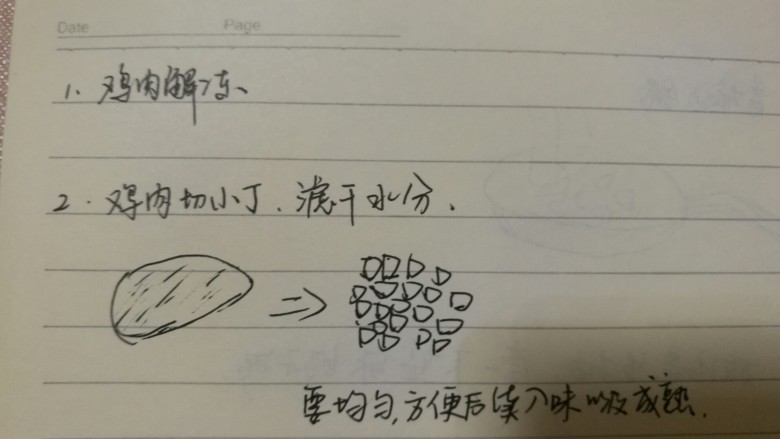 Date Page
1. 鸡肉解冻、
2. 鸡肉切小丁、滤干水分.
要均匀,方便后续入味以及成熟.